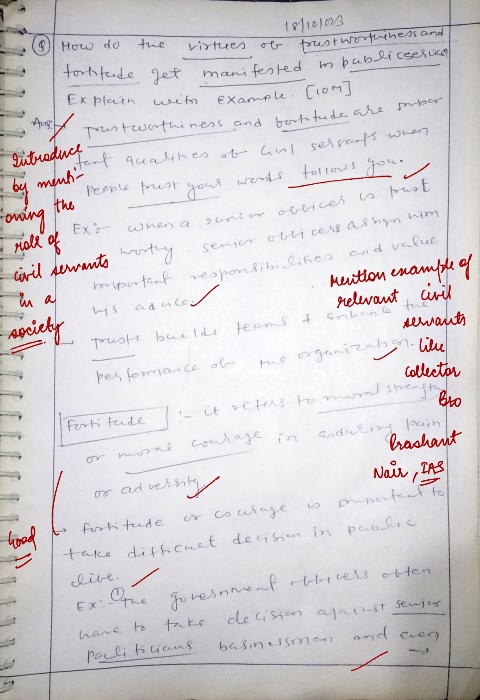 18/10/023
Q How do the virtues of trustworthiness and
fortitude get manifested in public service
Explain with example. [10M]
Ans →
trustworthiness and fortitude are impor
tant qualities of Civil servants when
people trust your words follows you.
Introduce
by menti-
oning the
role of
civil servants
in a
society
Ex:- when a junior officer is trust
worthy senior officers assign him
important responsibilities and value
his advice.
Mention example of
relevant civil
servants
like
collector
Bro
Prashant
Nair, IAS
trusts builds teams & enhance the
performance of the organization.
Fortitude :- it refers to moral strength
or moral courage in enduring pain
or adversity
Good
→ Fortitude or courage is important to
take difficult decision in public
live.
Ex:- ① The government officers often
have to take decision against senior
politicians businessman and even
→